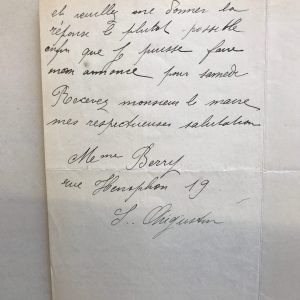 et veuillez me donner la
réponse le plutot possible
afin que je puisse faire
mon annonce pour samedi
Recevez monsieur le maire
mes respectueuses salutation
Meme Berry
rue Xenophon 19
S.. Augustin